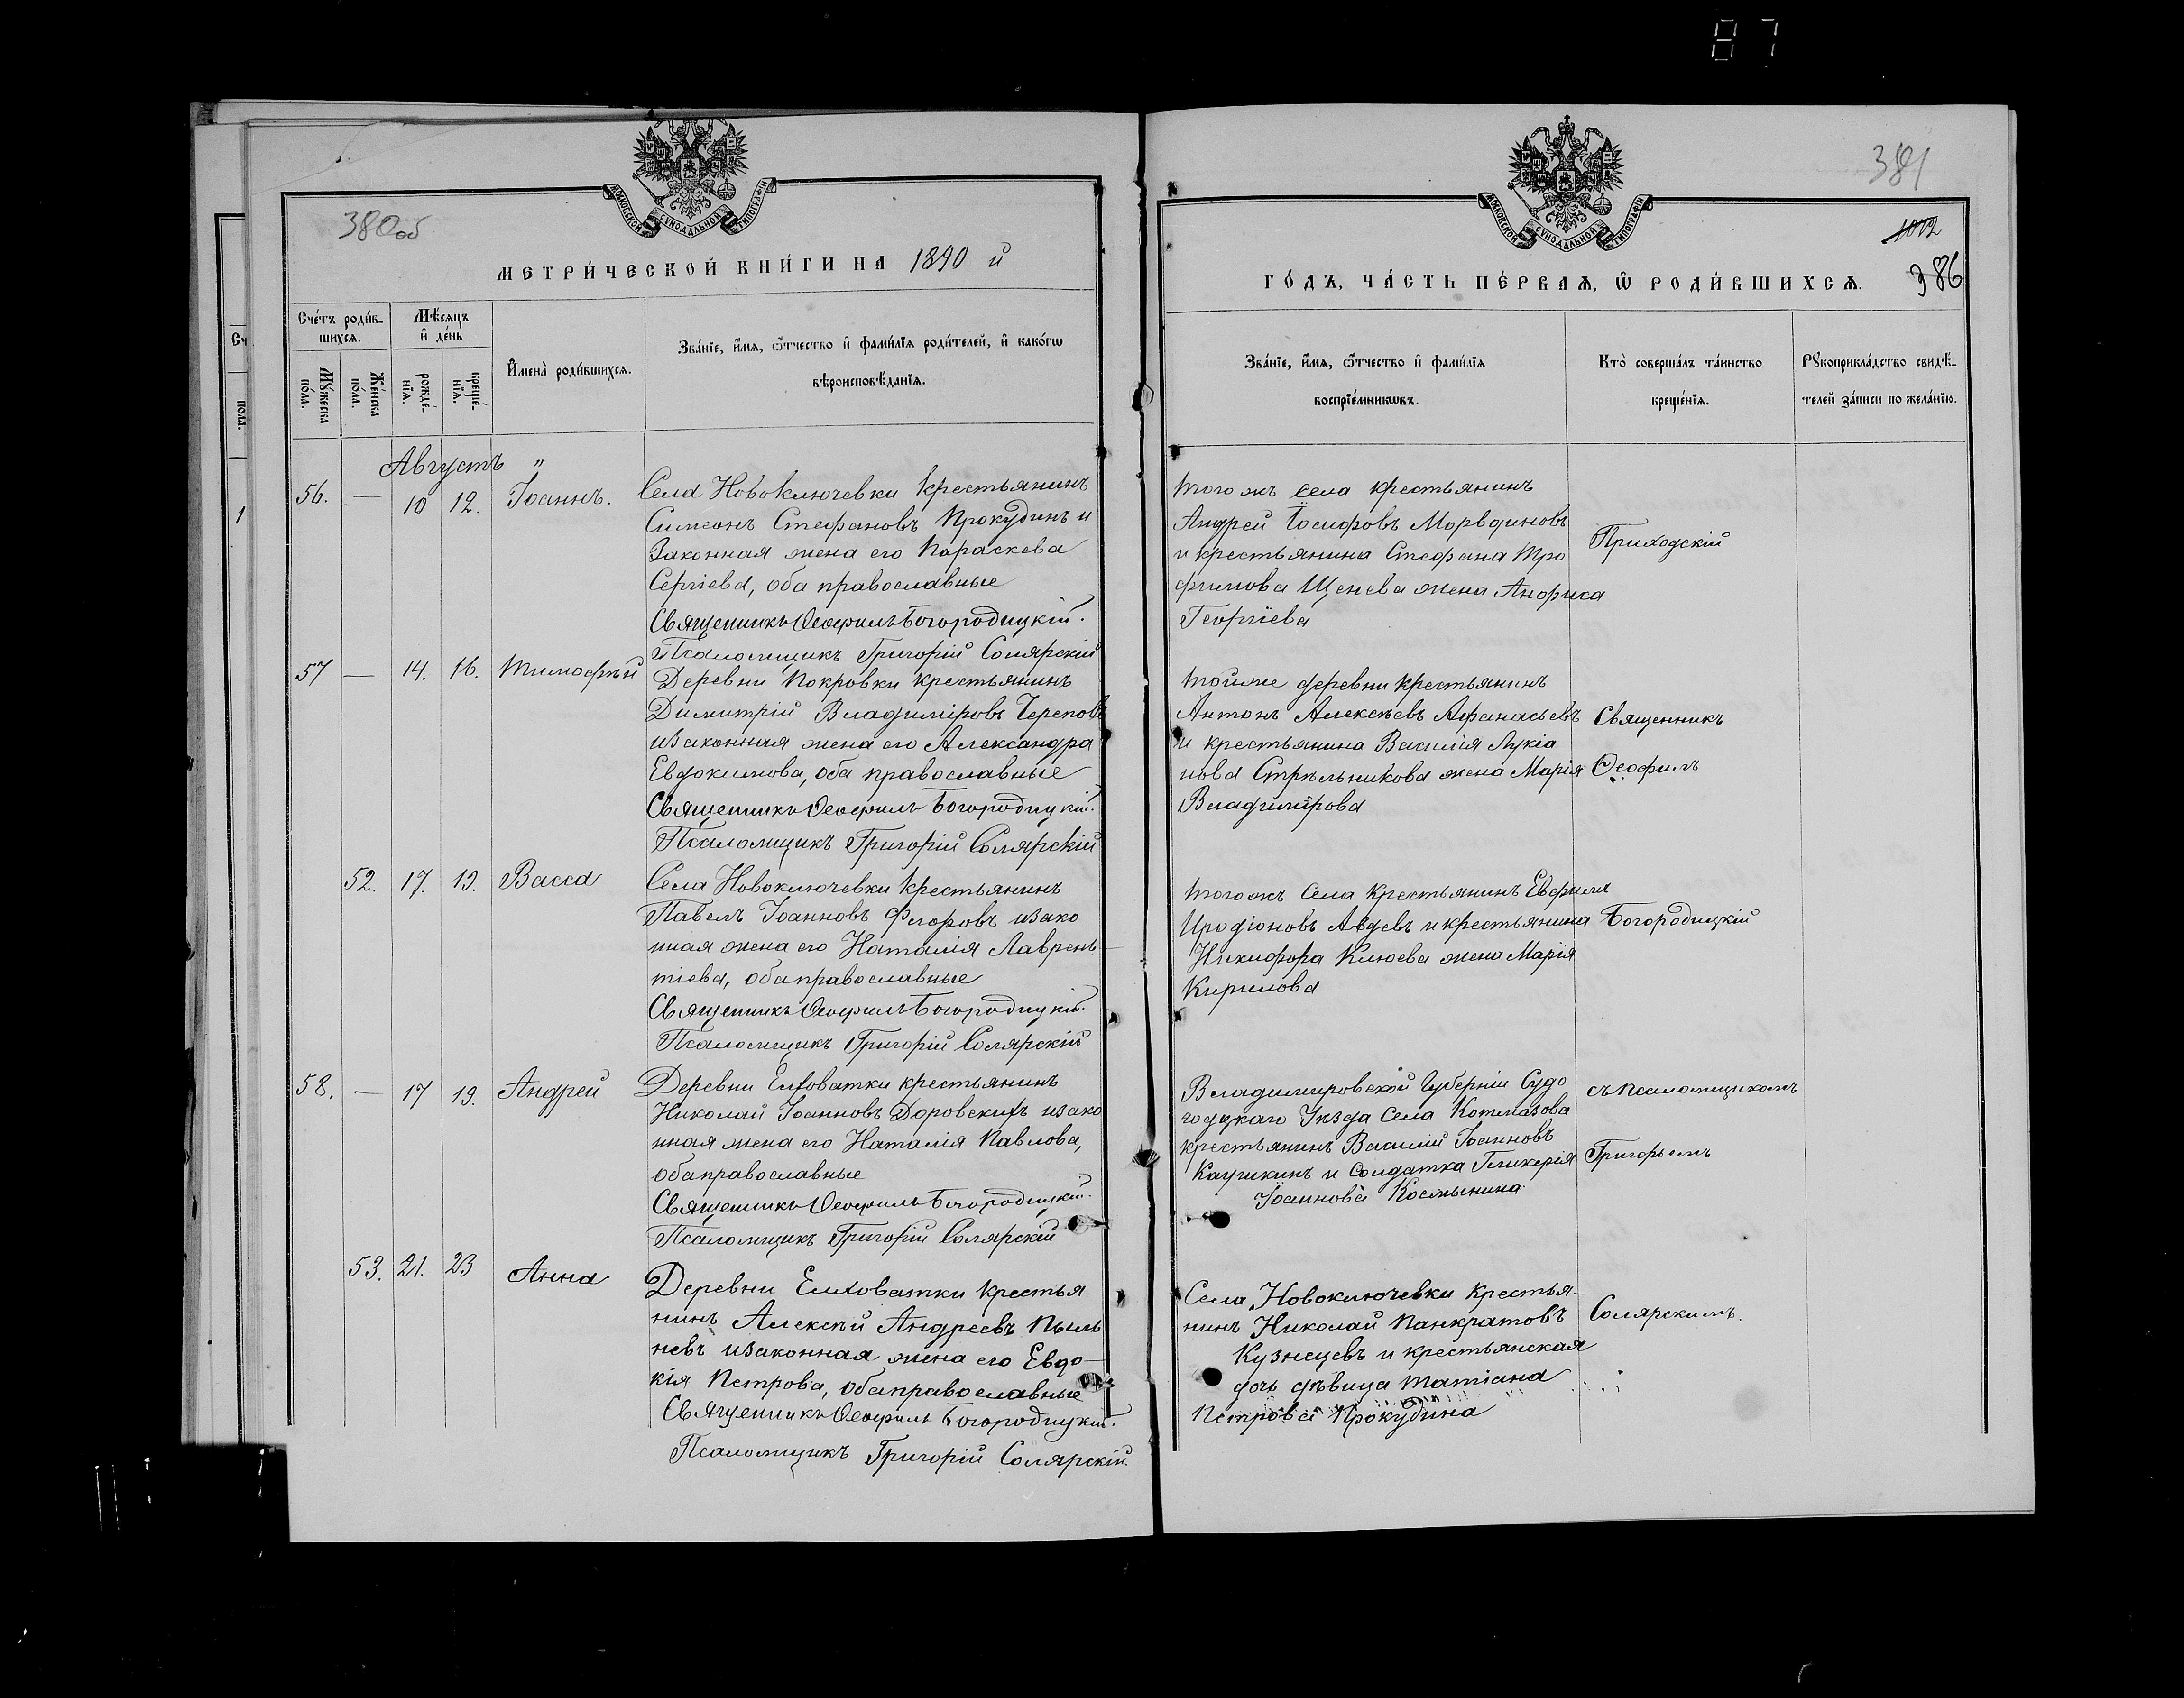 87
МОСКОВСКОЙ СѴНОДАЛЬНОЙ ТИПОГРАФІИ
380 об
МЕТРИ́ЧЕСКОЙ КНИ́ГИ НА 1890 й
Сче́тъ роди́в-
шихсѧ.
Мѣ́сѧцъ
и҆ де́нь
Мꙋ́жеска
по́ла.
Же́нска
по́ла.
рожде́-
нїѧ.
креще́-
нїѧ.
И҆мена̀ роди́вшихсѧ.
Зва́нїе, и҆́мѧ, ѻ҆́тчество и҆ фами́лїѧ роди́телей, и҆ како́гѡ
вѣроисповѣ́данїѧ.
Августъ "
56. — 10 12. Іоаннъ.
Села Новоключевки крестьянинъ
Симеонъ Стефановъ Прокудинъ и
законная жена его Параскева
Сергіева, оба православные
Священникъ Ѳеофилъ Богородицкій.
Псаломщикъ Григорій Солярскій
57 — 14. 16. Тимофѣй
Деревни Покровки крестьянинъ
Димитрій Владиміровъ Череповъ
изаконная жена его Александра
Евдокимова, оба православные
Священникъ Ѳеофилъ Богородицкій.
Псаломщикъ Григорій Солярскій
52. 17. 19. Васса
Села Новоключевки крестьянинъ
Павелъ Іоанновъ Федоровъ изако
нная жена его Наталія Лаврень-
тіева, оба православные
Священникъ Ѳеофилъ Богородицкій.
Псаломщикъ Григорій Солярскій
58. — 17 19. Андрей
Деревни Елховатки крестьянинъ
Николай Іоанновъ Доровскихъ изако
нная жена его Наталія Павлова,
оба православные
Священникъ Ѳеофилъ Богородицкій.
Псаломщикъ Григорій Солярскій
53. 21. 23 Анна
Деревни Елховатки крестья
нинъ Алексѣй Андреевъ Пыль
невъ изаконная жена его Евдо-
кія Петрова, оба православные
Священникъ Ѳеофилъ Богородицкій.
Псаломщикъ Григорій Солярскій.
МОСКОВСКОЙ СѴНОДАЛЬНОЙ ТИПОГРАФІИ
381
1012
386
ГО́ДЪ, ЧА́СТЬ ПЕ́РВАѦ, Ѡ҆ РОДИ́ВШИХСѦ.
Зва́нїе, и҆́мѧ, ѻ҆́тчество и҆ фами́лїѧ
воспрїе́мникѡвъ.
Кто̀ соверша́лъ та́инство
креще́нїѧ.
Рꙋкоприкла́дство свидѣ́-
телей за́писи по жела́нїю.
Того жъ села крестьянинъ
Андрей Іосифовъ Мордвиновъ
и крестьянина Стефана Тро
фимова Щенева жена Анфиса
Георгіева
Тойже деревни крестьянинъ
Антонъ Алексѣевъ Афанасьевъ
и крестьянина Василія Лукіа
нова Стрѣльникова жена Марія
Владимірова
Того жъ села крестьянинъ Евфимъ
Иродіоновъ Авдевъ и крестьянина
Никифора Клюева жена Марія
Кирилова
Владимировской Губерніи Судо
годцкаго Уѣзда Села
крестьянинъ Василій Іоанновъ
и солдатка Гликерія
Іоаннова Космынина
Села Новоключевки крестья-
нинъ Николай Панкратовъ
Кузнецевъ и крестьянская
дочь дѣвица Татіана
Петрова Прокудина
Приходскій
Священникъ
Ѳеофилъ
Богородицкій
съ псаломщикомъ
Григорьемъ
Солярскимъ.